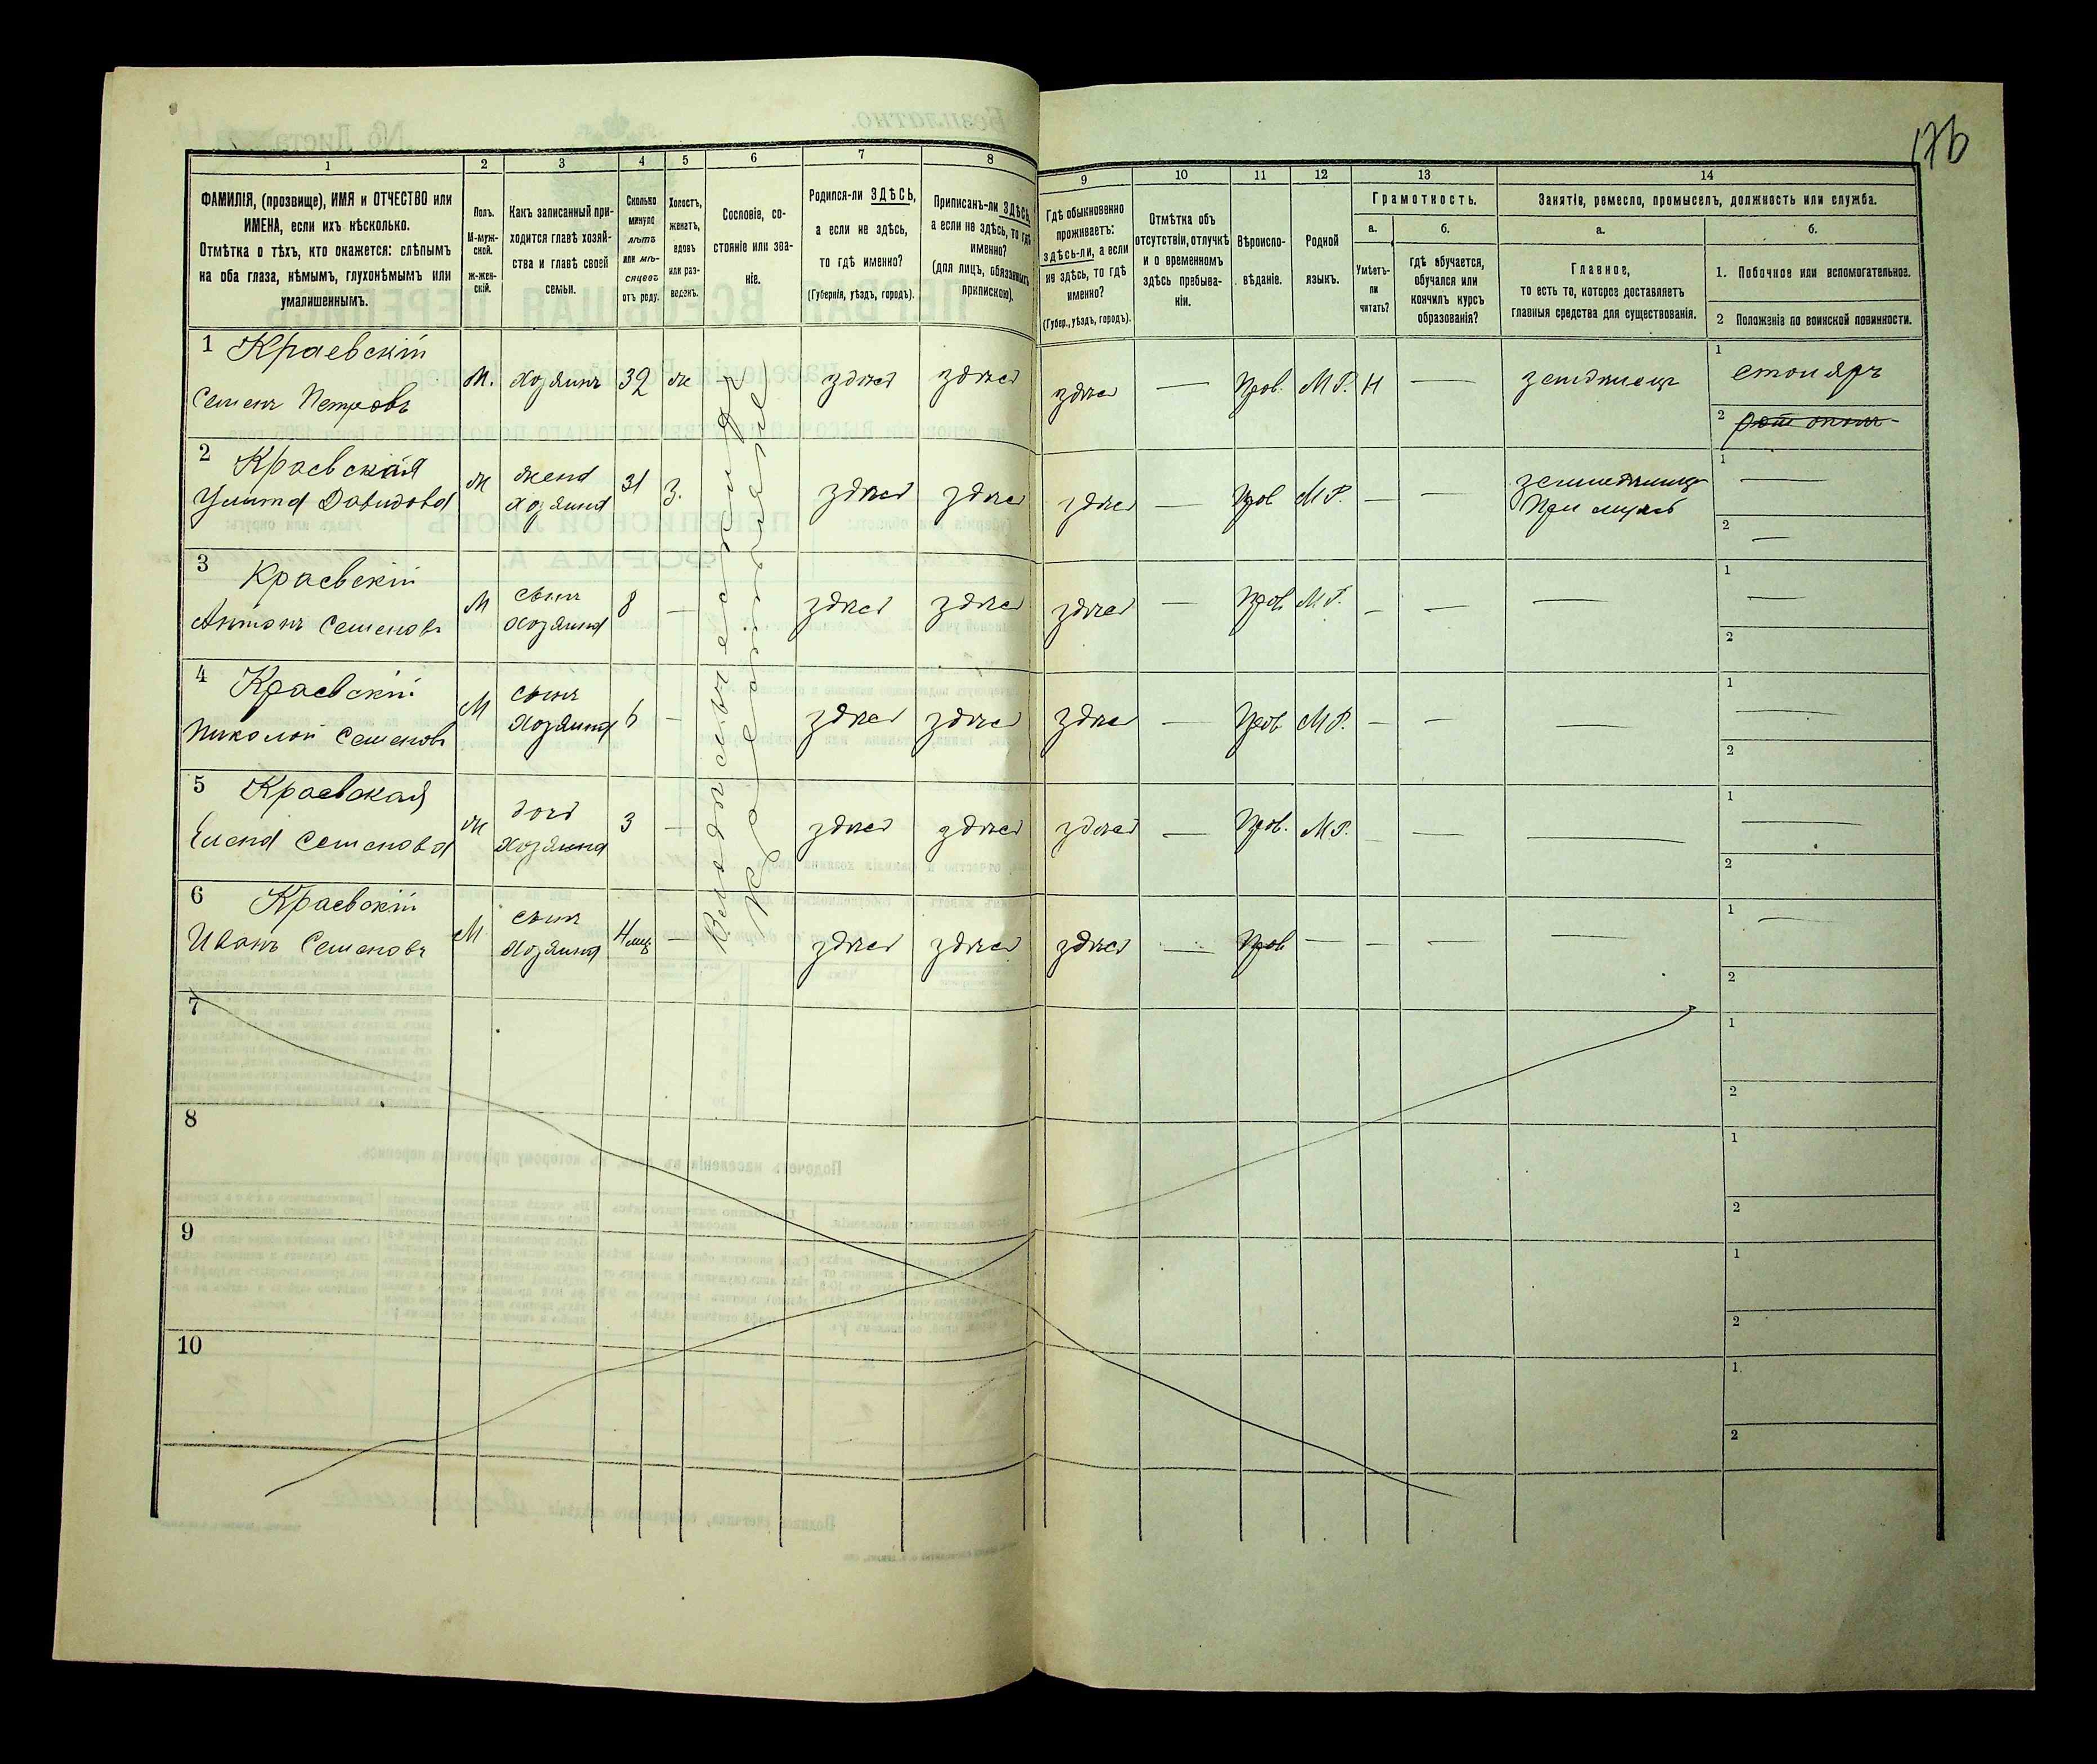 176
1 2 3 4 5 6 7 8 9 10 11 12 13 14
ФАМИЛІЯ, (прозвище), ИМЯ и ОТЧЕСТВО или
ИМЕНА, если ихъ нѣсколько.
Отмѣтка о тѣхъ, кто окажется: слѣпымъ
на оба глаза, нѣмымъ, глухонѣмымъ или
умалишеннымъ.
Полъ.
М-муж-
ской.
ж-жен-
скій.
Какъ записанный при-
ходится главѣ хозяй-
ства и главѣ своей
семьи.
Сколько
минуло
лѣтъ
или мѣ-
сяцевъ
отъ роду.
Холостъ,
женатъ,
вдовъ
или раз-
веденъ.
Сословіе, со-
стояніе или зва-
ніе.
Родился-ли ЗДѢСЬ,
а если не здѣсь,
то гдѣ именно?
(Губернія, уѣздъ, городъ).
Приписанъ-ли ЗДѢСЬ,
а если не здѣсь, то гдѣ
именно?
(для лицъ, обязанныхъ
припискою).
Гдѣ обыкновенно
проживаетъ:
здѣсь-ли, а если
не здѣсь, то гдѣ
именно?
(Губер., уѣздъ, городъ).
Отмѣтка объ
отсутствіи, отлучкѣ
и о временномъ
здѣсь пребыва-
ніи.
Вѣроиспо-
вѣданіе.
Родной
языкъ.
Грамотность.
а.
Умѣетъ-
ли
читать?
б.
гдѣ обучается,
обучался или
кончилъ курсъ
образованія?
Занятіе, ремесло, промыселъ, должность или служба.
а.
Главное,
то есть то, которое доставляетъ
главныя средства для существованія.
б.
1. Побочное или вспомогательное.
2 Положеніе по воинской повинности.
1 Краевскій
Семенъ Петровъ
М. хозяинъ 32 ж здѣсь здѣсь здѣсь — Прав. М.Р. Н — земледѣлецъ
1 столяръ
2
2 Краевская
Улита Давидова
ж жена
хозяина
31 з. здѣсь здѣсь здѣсь — Прав М.Р. — —
При мужѣ
1 —
2 —
3 Краевскій
Антонъ Семеновъ
М сынъ
хозяина
8 — здѣсь здѣсь здѣсь — Прав М.Р. — — —
1 —
2
4 Краевскій
Николай Семеновъ
М сынъ
хозяина
6 — здѣсь здѣсь здѣсь — Прав М.Р. — — —
1 —
2
5 Краевская
Елена Семенова
ж дочь
хозяина
3 — здѣсь здѣсь здѣсь — Прав. М.Р. — — —
1 —
2
6 Краевскій
Иванъ Семеновъ
М сынъ
хозяина
4 мѣс — здѣсь здѣсь здѣсь — Прав — — — —
1 —
2
7
1
2
8
1
2
9
1
2
10
1
2